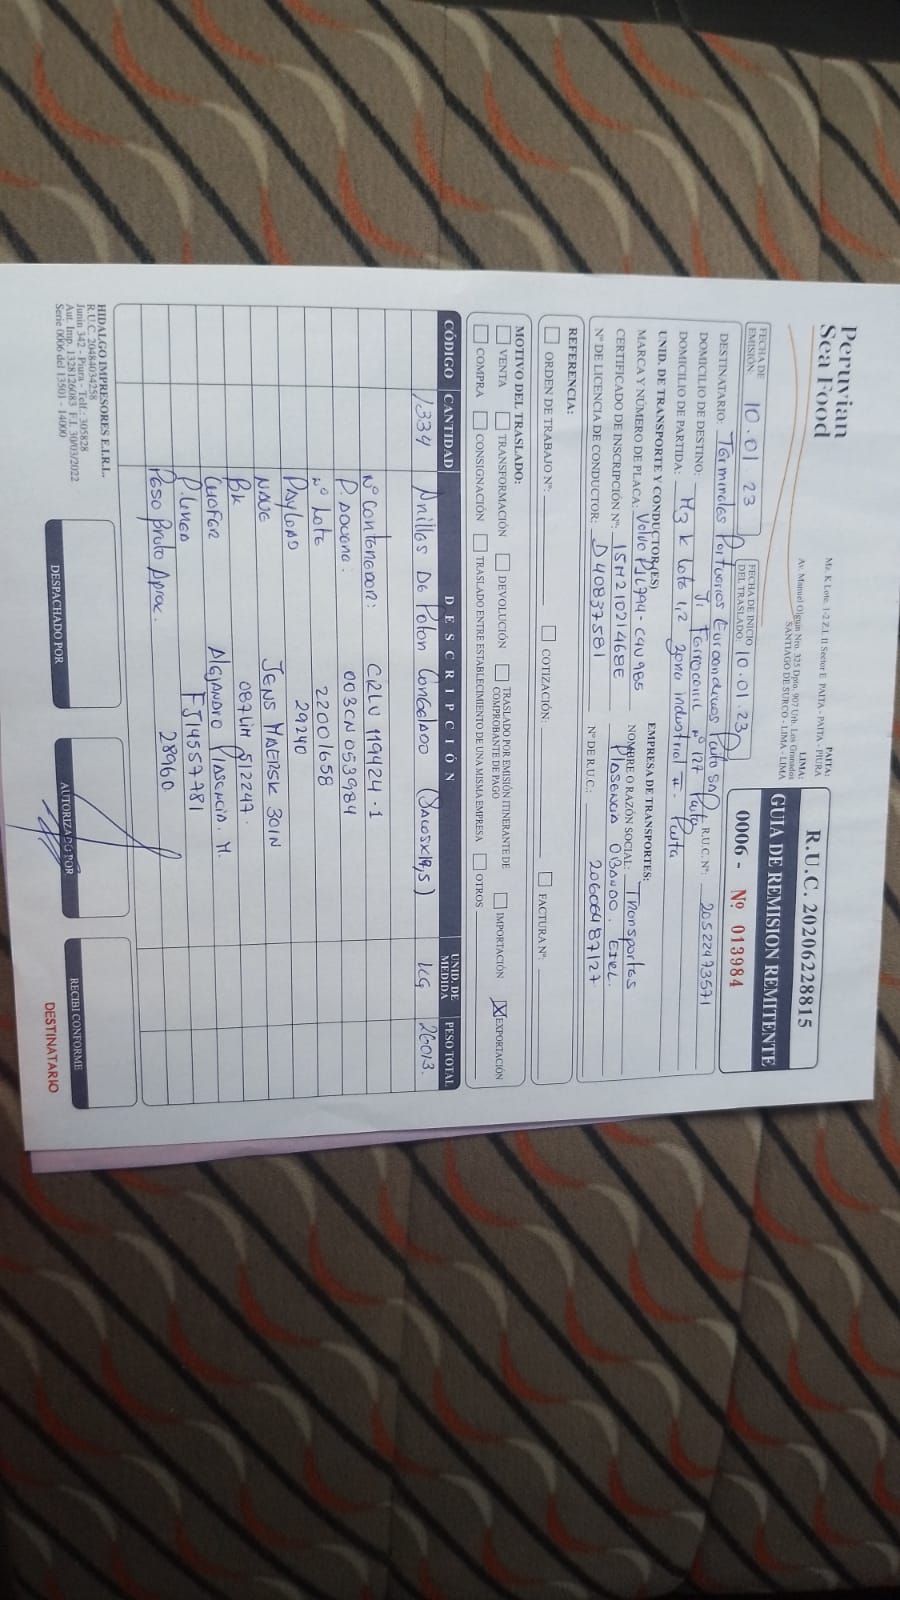 Peruvian
Sea Food
PAITA:
Mz. K Lote. 1-2 Z.I. II Sector E PAITA - PAITA - PIURA
LIMA:
Av. Manuel Olguin Nro. 325 Dpto. 907 Urb. Los Granados
SANTIAGO DE SURCO - LIMA - LIMA
R.U.C. 20206228815
GUIA DE REMISION REMITENTE
0006 - Nº 013984
FECHA DE EMISIÓN 10.01.23
FECHA DE INICIO DEL TRASLADO: 10.01.23
DESTINATARIO: Terminales Portuarios Euroandinos Paita SA R.U.C. Nº: 20522473571
DOMICILIO DE DESTINO: Ferrocarril Nº 127 Paita
DOMICILIO DE PARTIDA: Mz K Lote 1,2 zona industrial II - Paita
UNID. DE TRANSPORTE Y CONDUCTOR(ES)
MARCA Y NÚMERO DE PLACA: Volvo
CERTIFICADO DE INSCRIPCIÓN Nº: 15M21021468E
Nº DE LICENCIA DE CONDUCTOR: D40837581
EMPRESA DE TRANSPORTES:
NOMBRE O RAZÓN SOCIAL: Transportes
Plasencia Obando. EIRL.
Nº DE R.U.C.: 20606487127
REFERENCIA:
ORDEN DE TRABAJO Nº: COTIZACIÓN: FACTURA Nº:
MOTIVO DEL TRASLADO:
VENTA TRANSFORMACIÓN DEVOLUCIÓN TRASLADO POR EMISIÓN ITINERANTE DE COMPROBANTE DE PAGO IMPORTACIÓN X EXPORTACIÓN
COMPRA CONSIGNACIÓN TRASLADO ENTRE ESTABLECIMIENTO DE UNA MISMA EMPRESA OTROS
CÓDIGO CANTIDAD DESCRIPCIÓN UNID. DE MEDIDA PESO TOTAL
1334 Anillas De Poton Congelado (Sacosx19,5) KG 26013.
Nº Contenedor: CRLU 119424-1
P. Aduana: 003CN053984
Nº Lote 22001658
Payload 29240
Nave JENS MAERSK 301N
Bk 087LIM 512247.
Chofer Alejandro Plasencia. M.
P. Linea FJ14557781
Peso Bruto Aprox. 28960
HIDALGO IMPRESORES E.I.R.L.
R.U.C. 20484034258
Junín 342 - Piura - Telf.: 305828
Aut. Imp. 1328126083 F.I. 30/03/2022
Serie 0006 del 13501 - 14000
DESPACHADO POR
AUTORIZADO POR
RECIBI CONFORME
DESTINATARIO